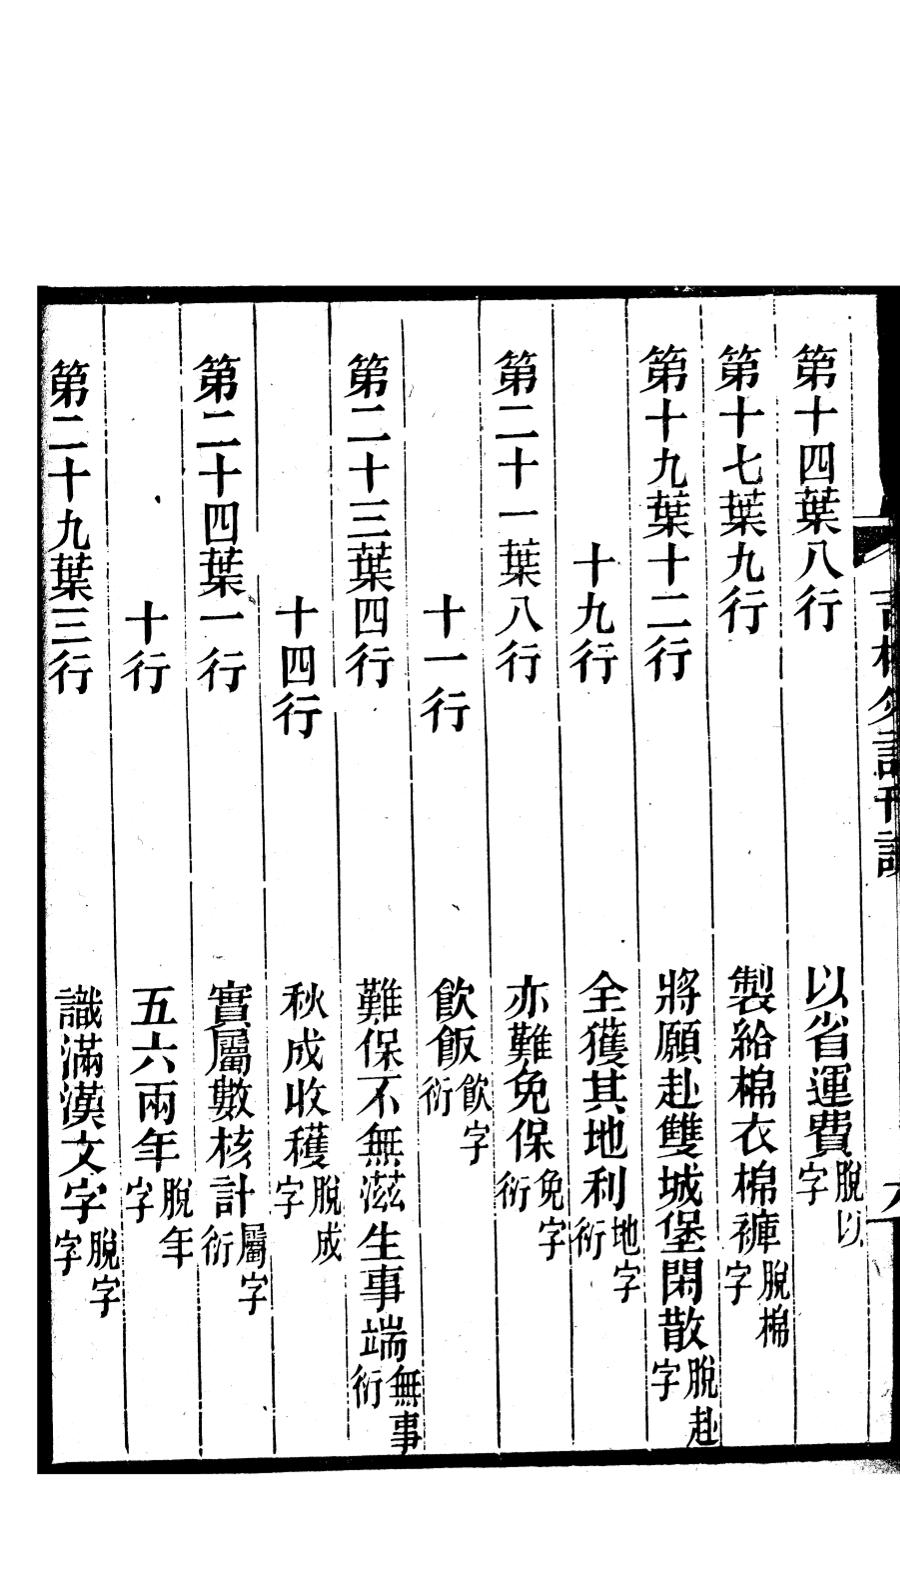 第十四葉八行　以省運費脫以字
第十七葉九行　製給棉衣棉褲脫棉字
第十九葉十二行　將願赴雙城堡閑散脫赴字
十九行　全獲其地利地字衍
第二十一葉八行　亦難免保免字衍
十一行　飲飯飲字衍
第二十三葉四行　難保不無滋生事端無事衍
十四行　秋成收穫脫成字
第二十四葉一行　實屬數核計屬字衍
十行　五六兩年脫年字
第二十九葉三行　識滿漢文字脫字字